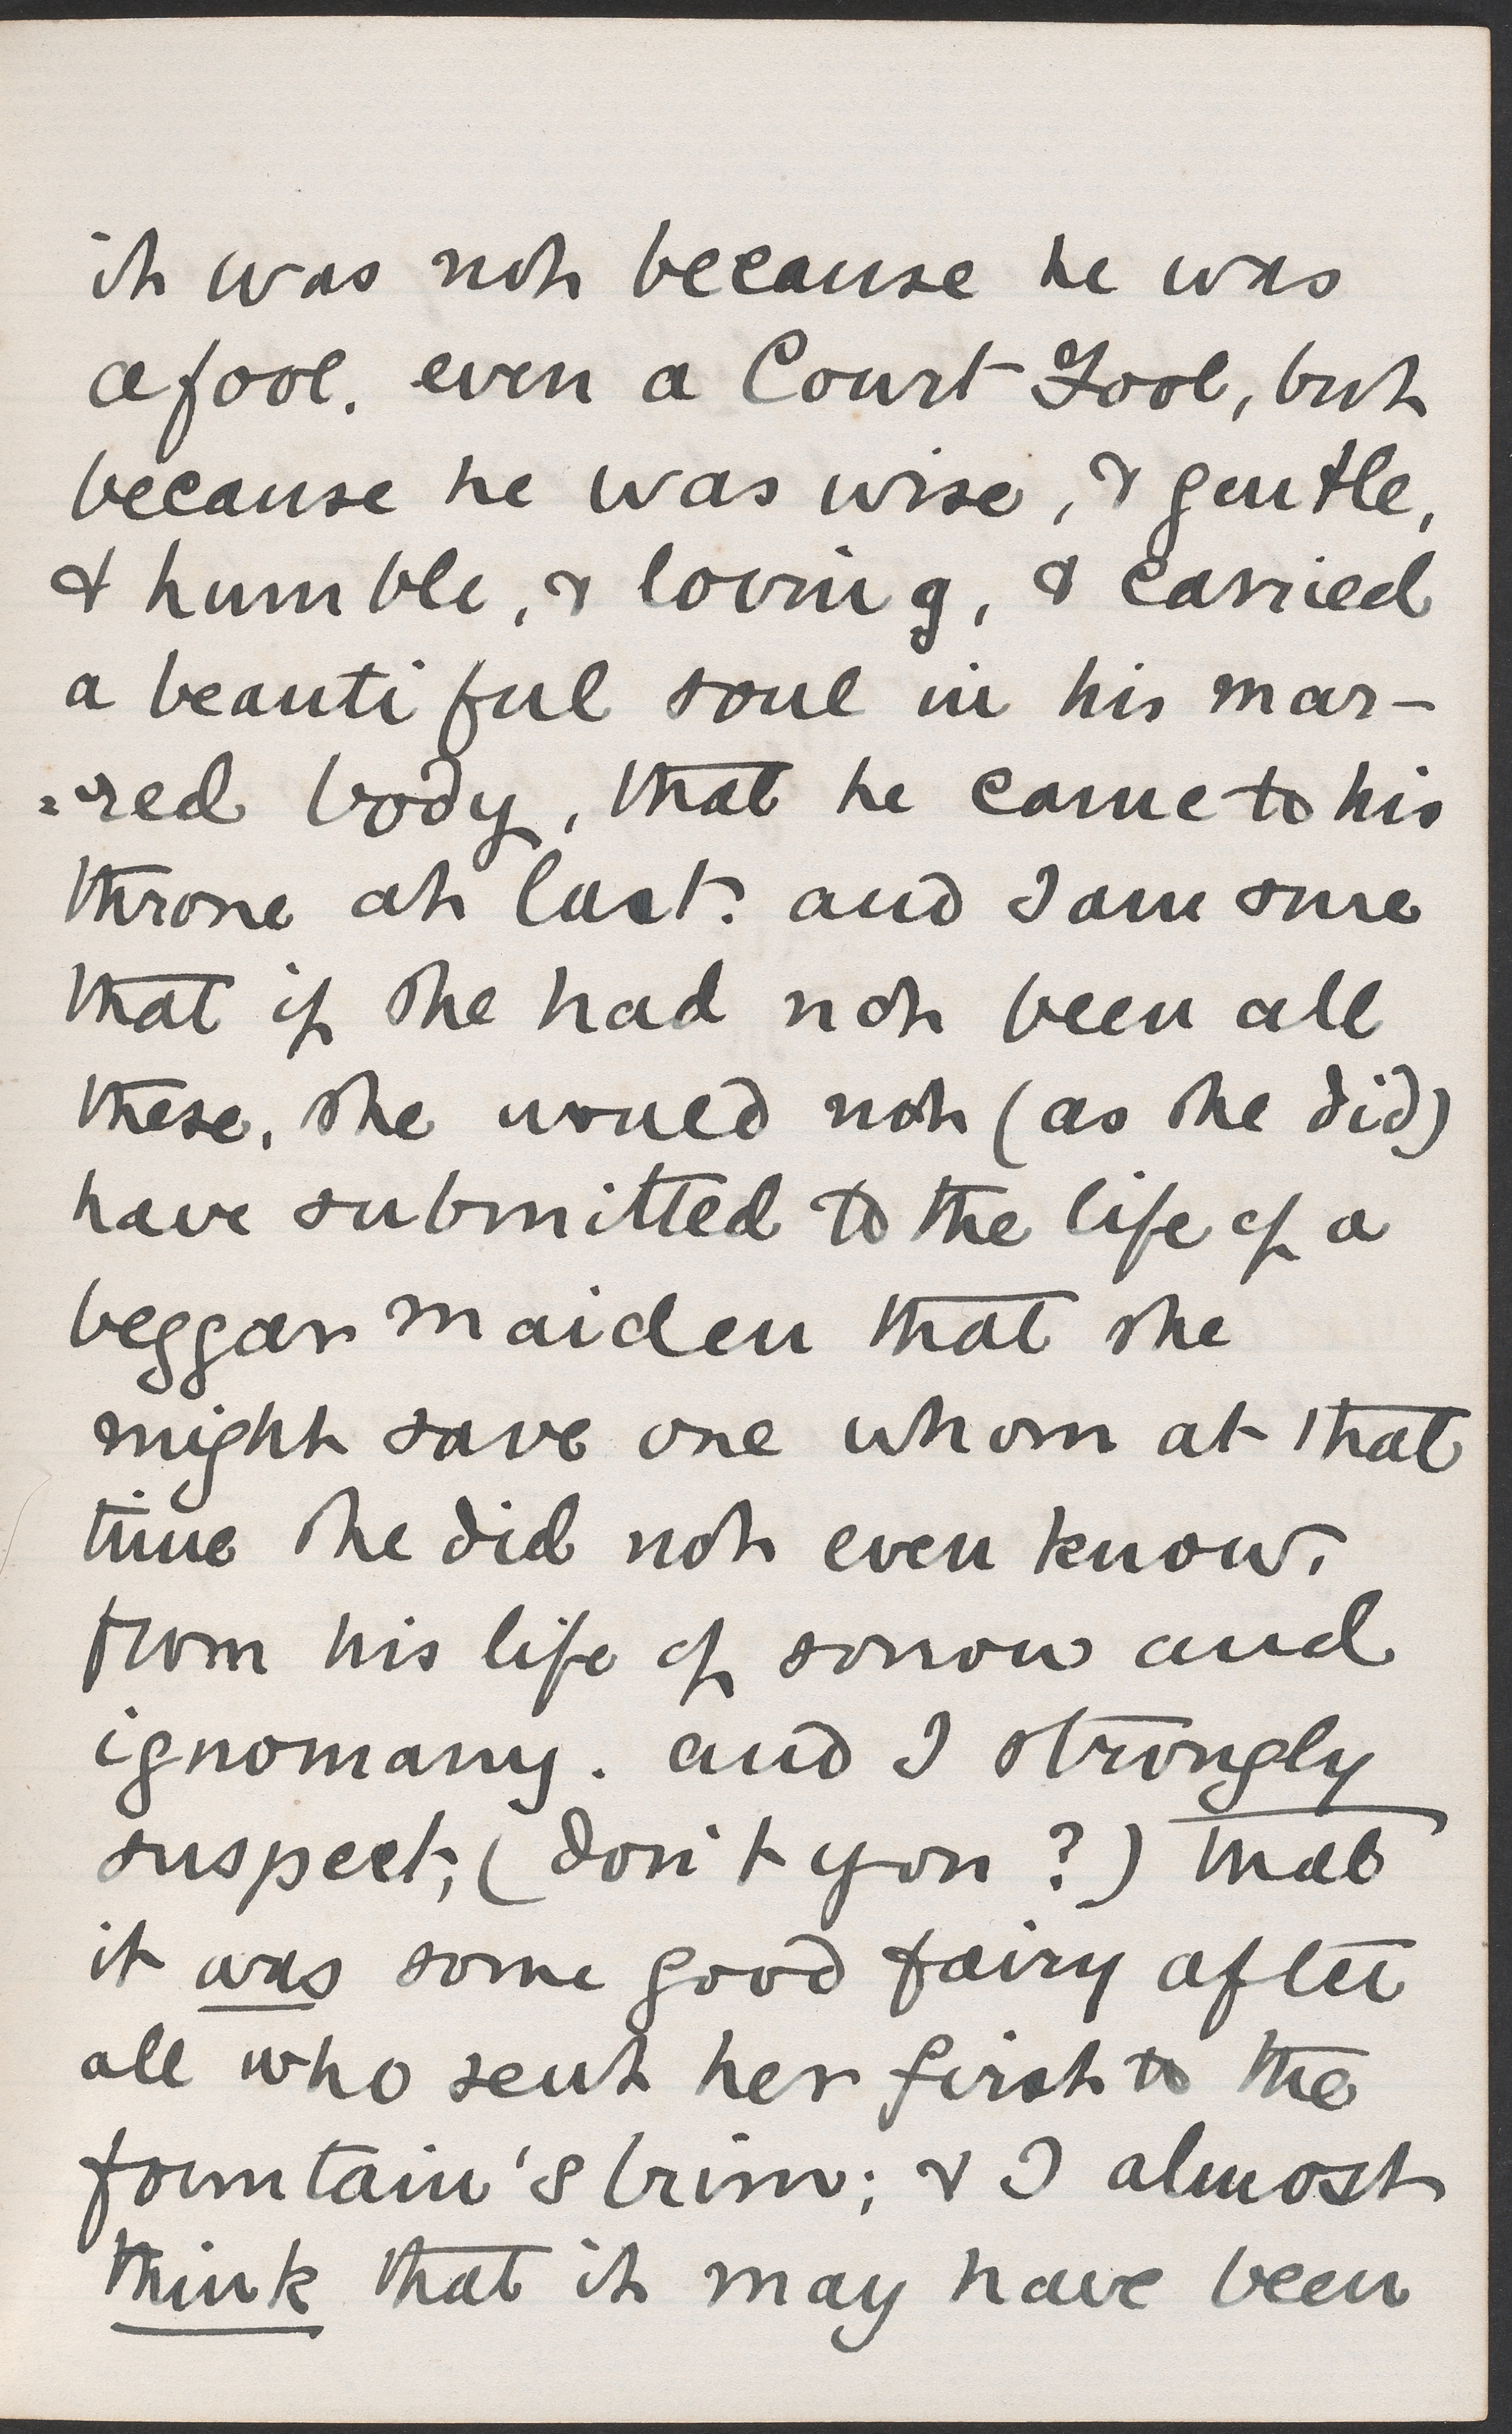 it was not because he was
a fool. even a Court Fool, but
because he was wise, & gentle,
& humble, & loving, & carried
a beautiful soul in his mar-
=red body, that he came to his
throne at last. and I am sure
that if she had not been all
these, she would not (as she did)
have submitted to the life of a
beggar maiden that she
might save one whom at that
time she did not even know.
from his life of sorrow and
ignomany. and I strongly
suspect, (don't you?) that
it was some good fairy after
all who sent her first to the
fountain's brim; & I almost
think that it may have been